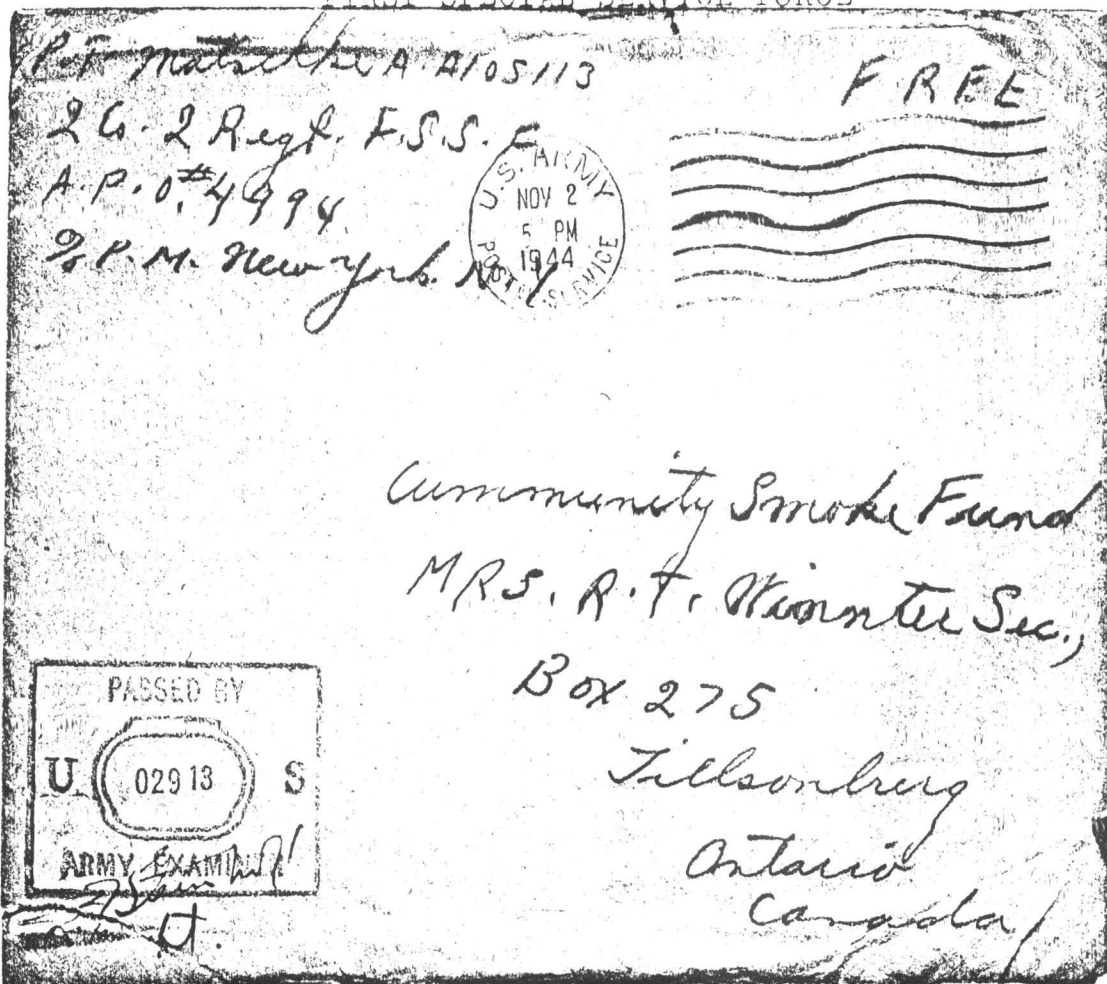 FIRST SPECIAL SERVICE FORCE
A. A105113
FREE
2 Co. 2 Regt. F.S.S.F
A.P.O. #4994.
% P.M. New York. N.Y
U.S. ARMY
NOV 2
5 PM
1944
POSTAL SERVICE
Cummunity Smoke Fund
MRS. R.T. Sec.,
Box 275
Tillsonburg
Ontario
Canada
PASSED BY
U 02913 S
ARMY EXAMINER